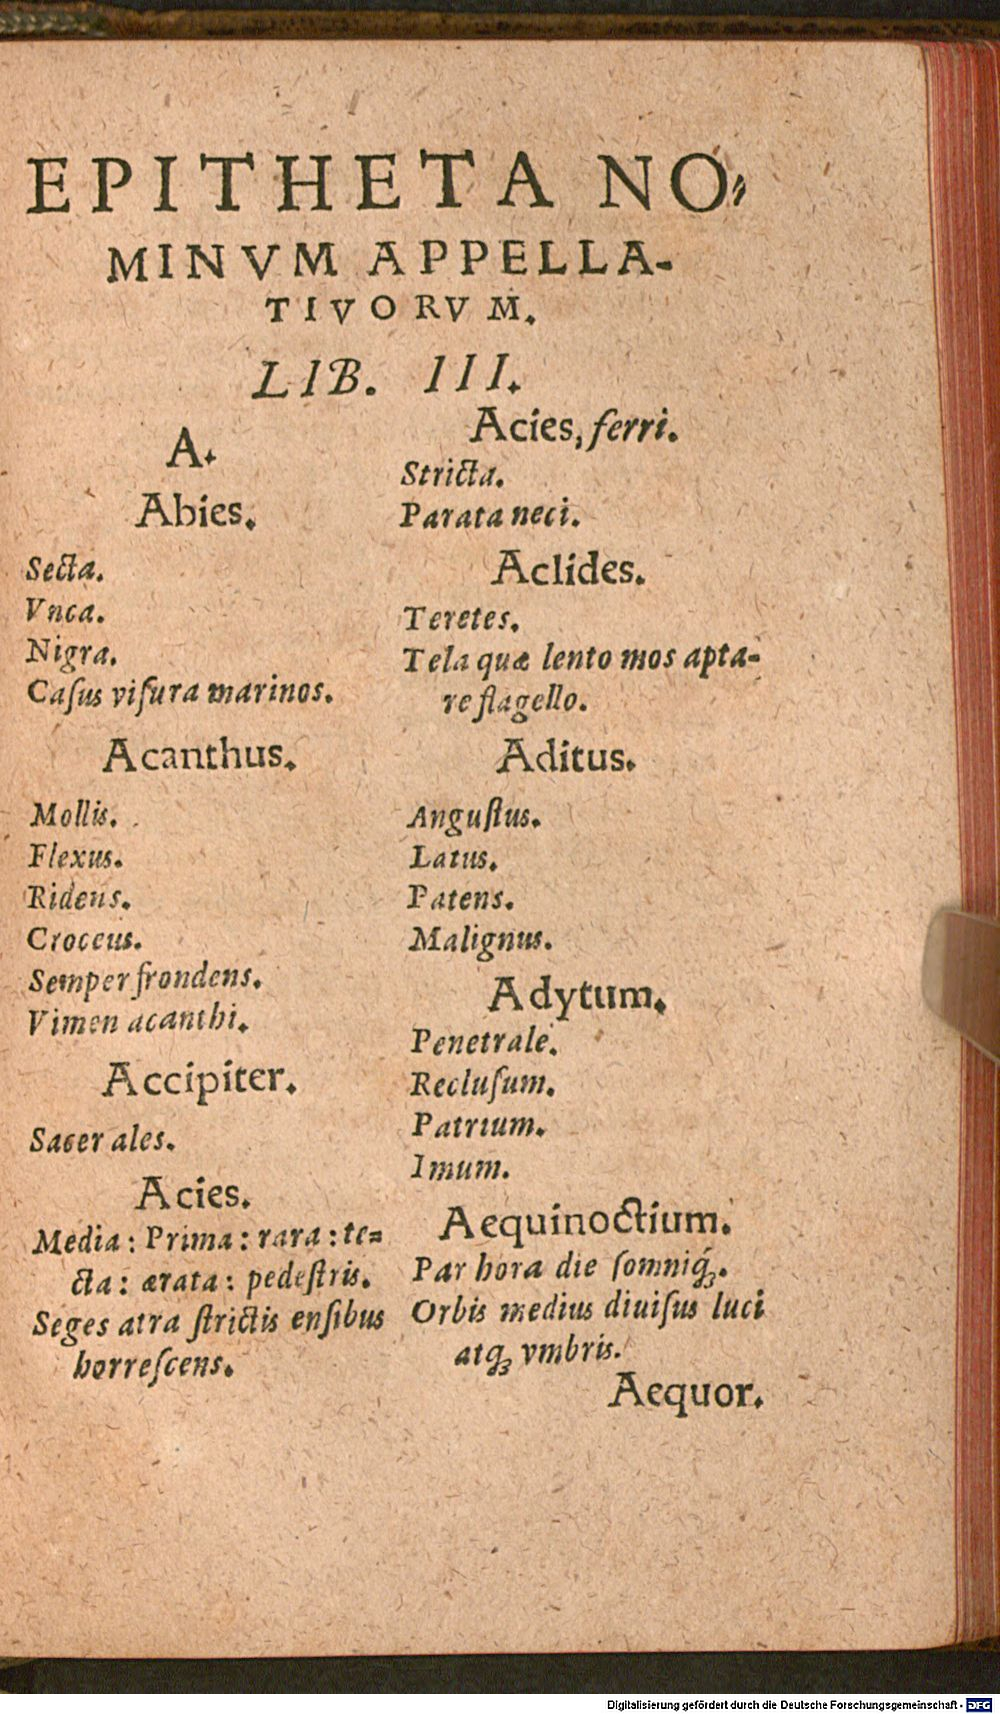 EPITHETA NO-
MINVM APPELLA-
TIVORVM.
LIB. III.
A.
Abies.
Secta.
Vnca.
Nigra.
Caſus viſura marinos.
Acanthus.
Mollis.
Flexus.
Ridens.
Croceus.
Semper frondens.
Vimen acanthi.
Accipiter.
Sacer ales.
Acies.
Media: Prima: rara: te=
cta: ærata: pedeſtris.
Seges atra ſtrictis enſibus
horreſcens.
Acies, ferri.
Stricta.
Parata neci.
Aclides.
Teretes.
Tela quæ lento mos apta-
re flagello.
Aditus.
Anguſtus.
Latus.
Patens.
Malignus.
Adytum.
Penetrale.
Recluſum.
Patrium.
Imum.
Aequinoctium.
Par hora die ſomniq́;.
Orbis medius diuiſus luci
atq; vmbris.
Aequor.
Digitalisierung gefördert durch die Deutsche Forschungsgemeinschaft - DFG